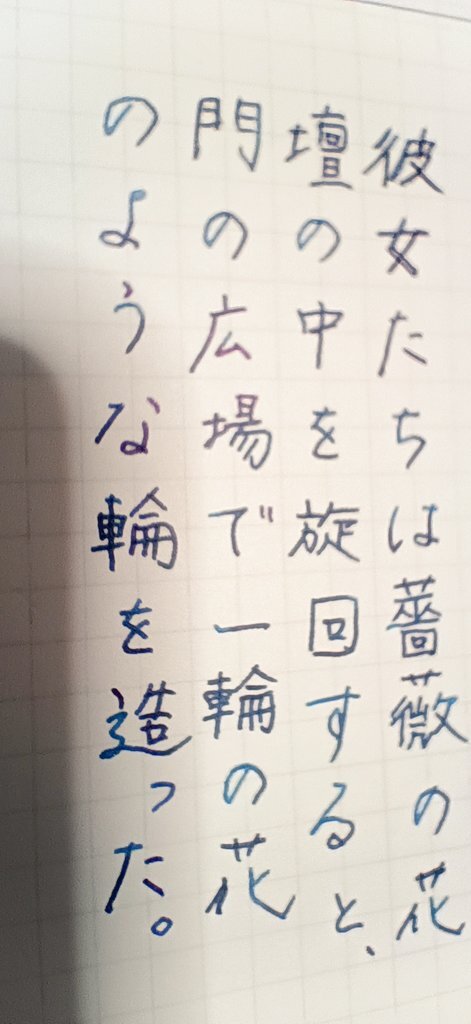 彼女たちは薔薇の花
壇の中を旋回すると、
門の広場で一輪の花
のような輪を造った。